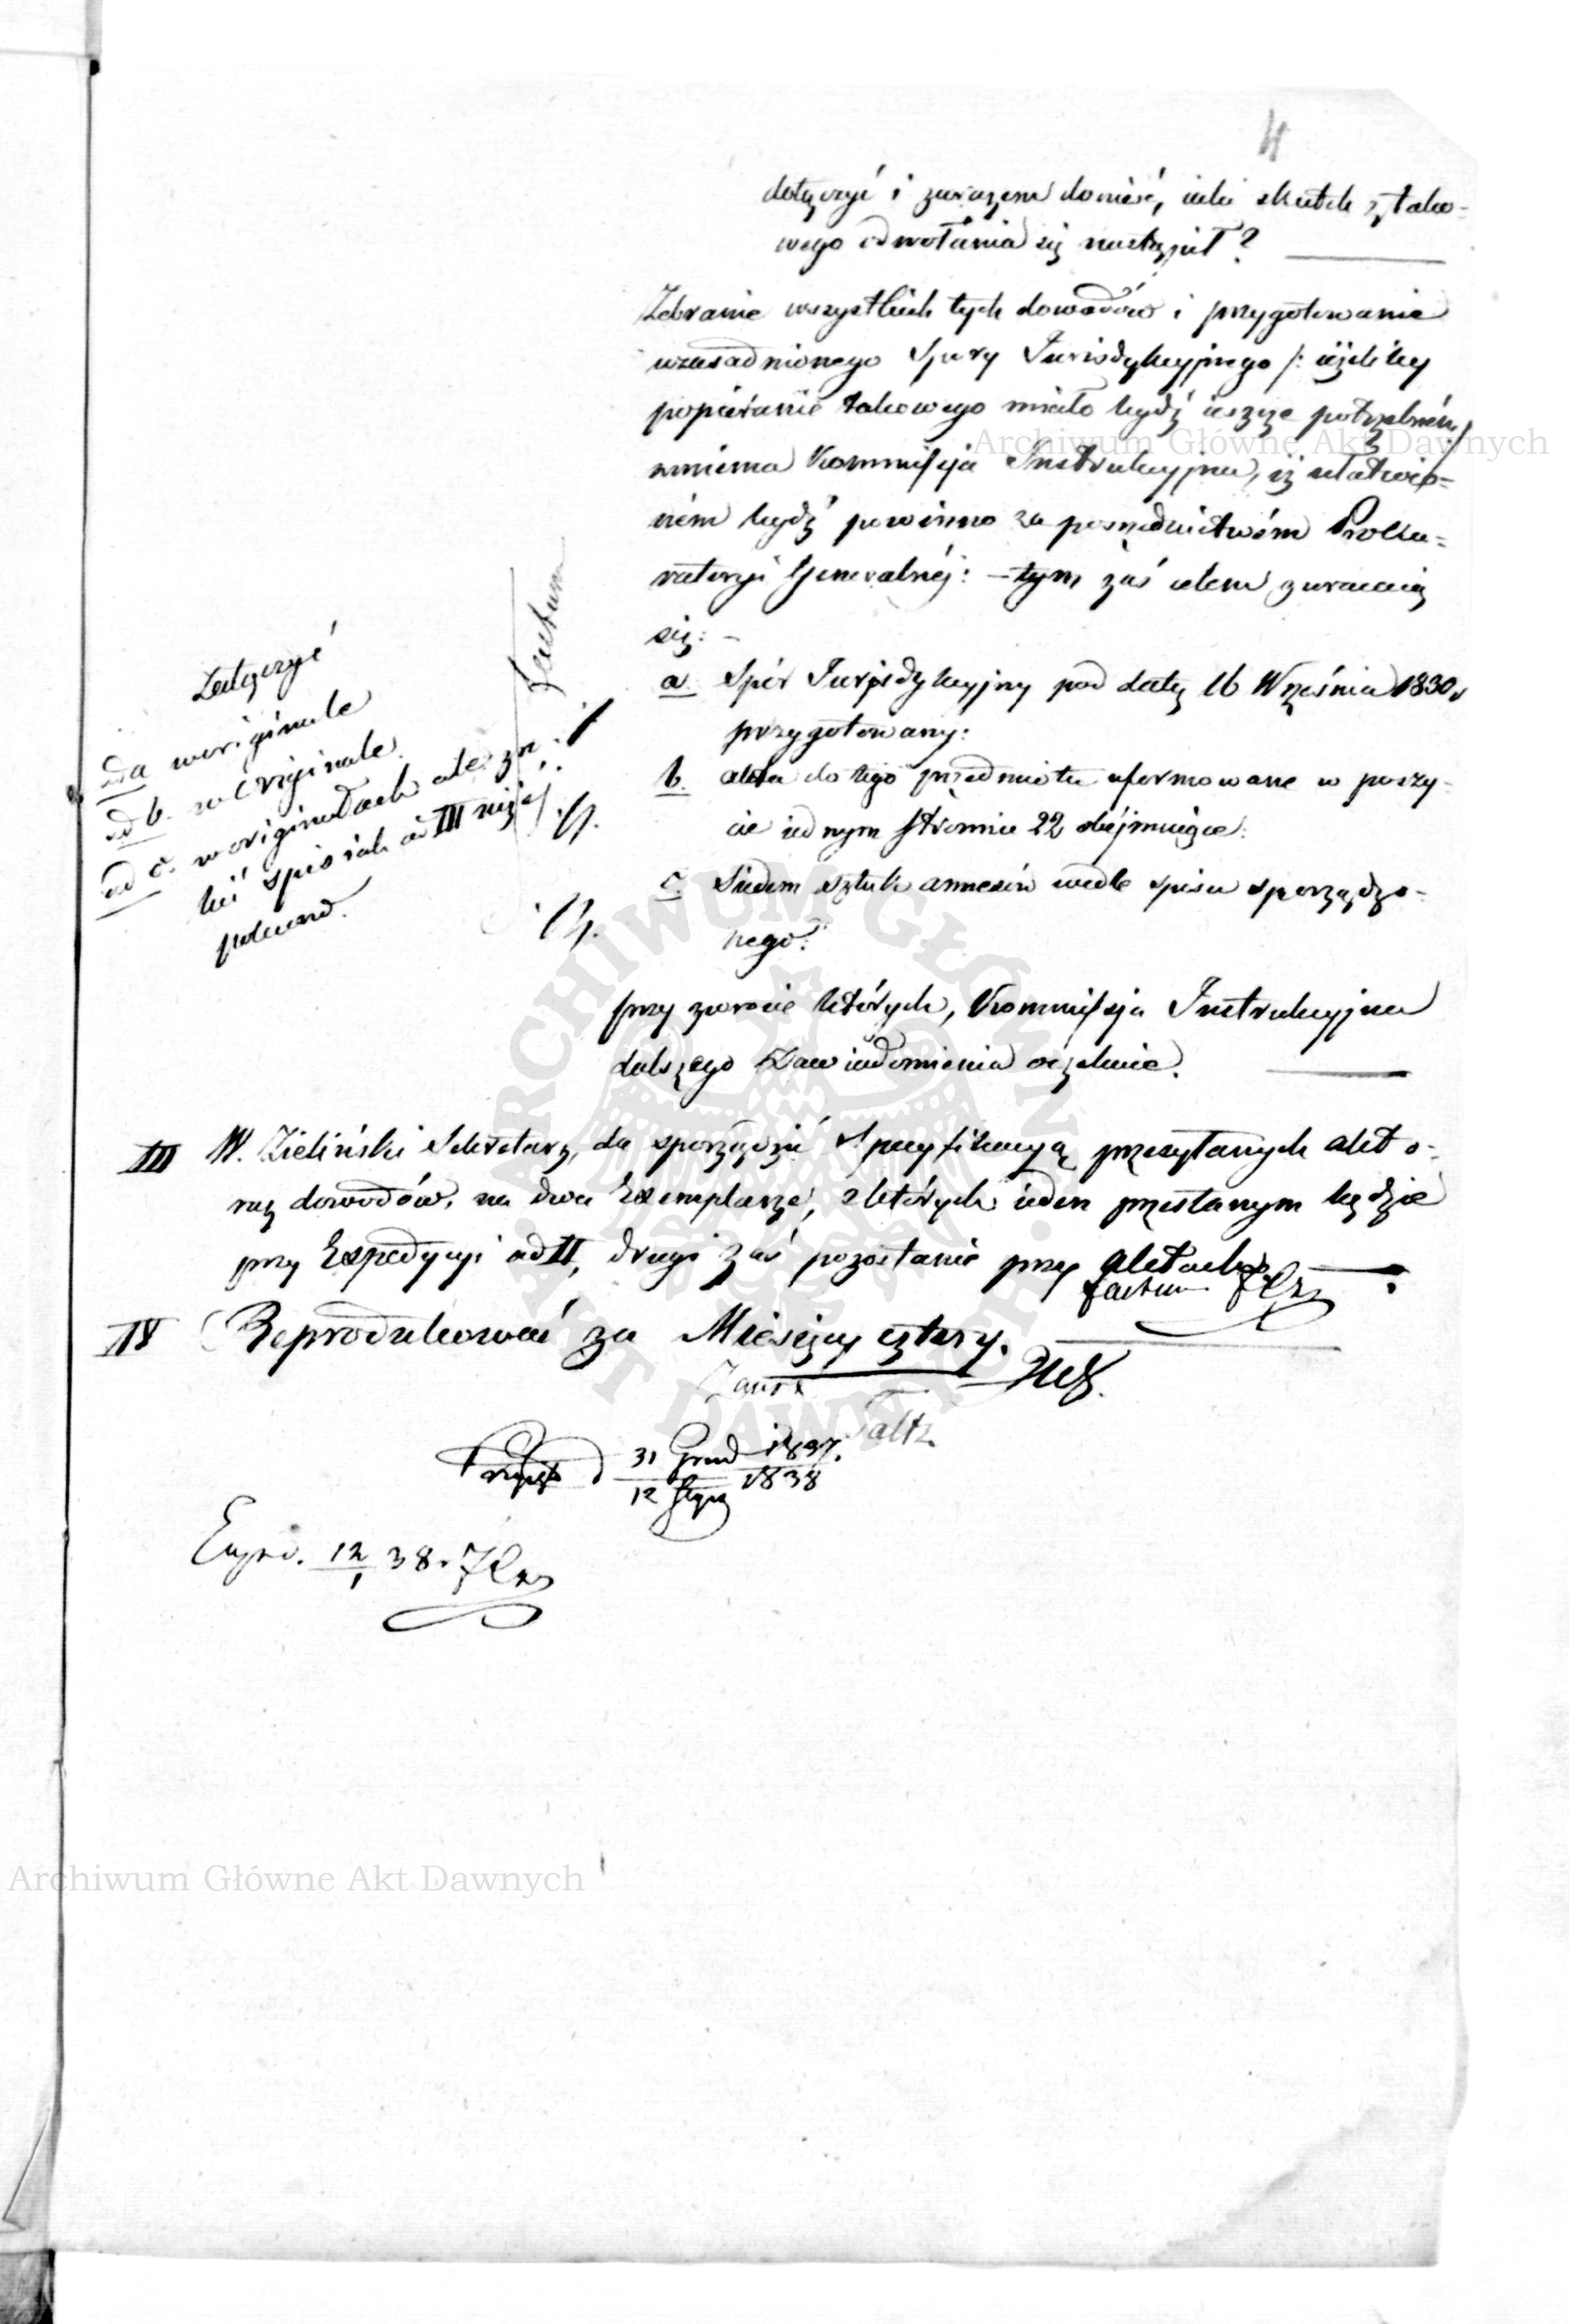 4
dołączyć i zarazem donieść, iaki skutek z tako-
wego odwołania się nastąpił?
Zebranie wszystkich tych dowodów i przygotowanie
uzasadnionego Spory Jurisdykcyjnego /: ieżeliby
popieranie takowego miało bydź ieszcze potrzebném,
mniema Kommissyja Instrukcyjna, iż ułatwio-
ném bydź powinno za pośrednictwém Proku-
ratoryi Generalnéj: – tym zaś celem zwracaią
się: –
a. Spór Jurisdykcyjny pod datą 16 Września 1830 r
przygotowany:
b. akta do tego przedmiotu uformowane w poszy-
cie iednym stronnic 22 obéjmuiące:
c. Siedem sztuk annexów wedle spisu sporządzo-
nego:
przy zwrocie których, Kommissyja Instrukcyjna
dalszego Zawiadomienia oczekuie.
Załączyć
ad a w originale
ad b. w Originale.
ad c. w originałach ale zro
bić spis iak ad III niżej
polecono.
factum
III W. Zieliński Sekretarz, da sporządzić Specyfikacyą przesyłanych akt o-
raz dowodów, na dwa Exemplarze, z których ieden przesłanym będzie
przy Expedycyi ad II, drugi zaś pozostanie przy aktach.
factum
IV Reprodukować za Miesięcy cztery.
31 Grud 1837.
12 Stycz 1838
Exped. 12/1 38.
Archiwum Główne Akt Dawnych
Archiwum Główne Akt Dawnych
ARCHIWUM GŁÓWNE AKT DAWNYCH